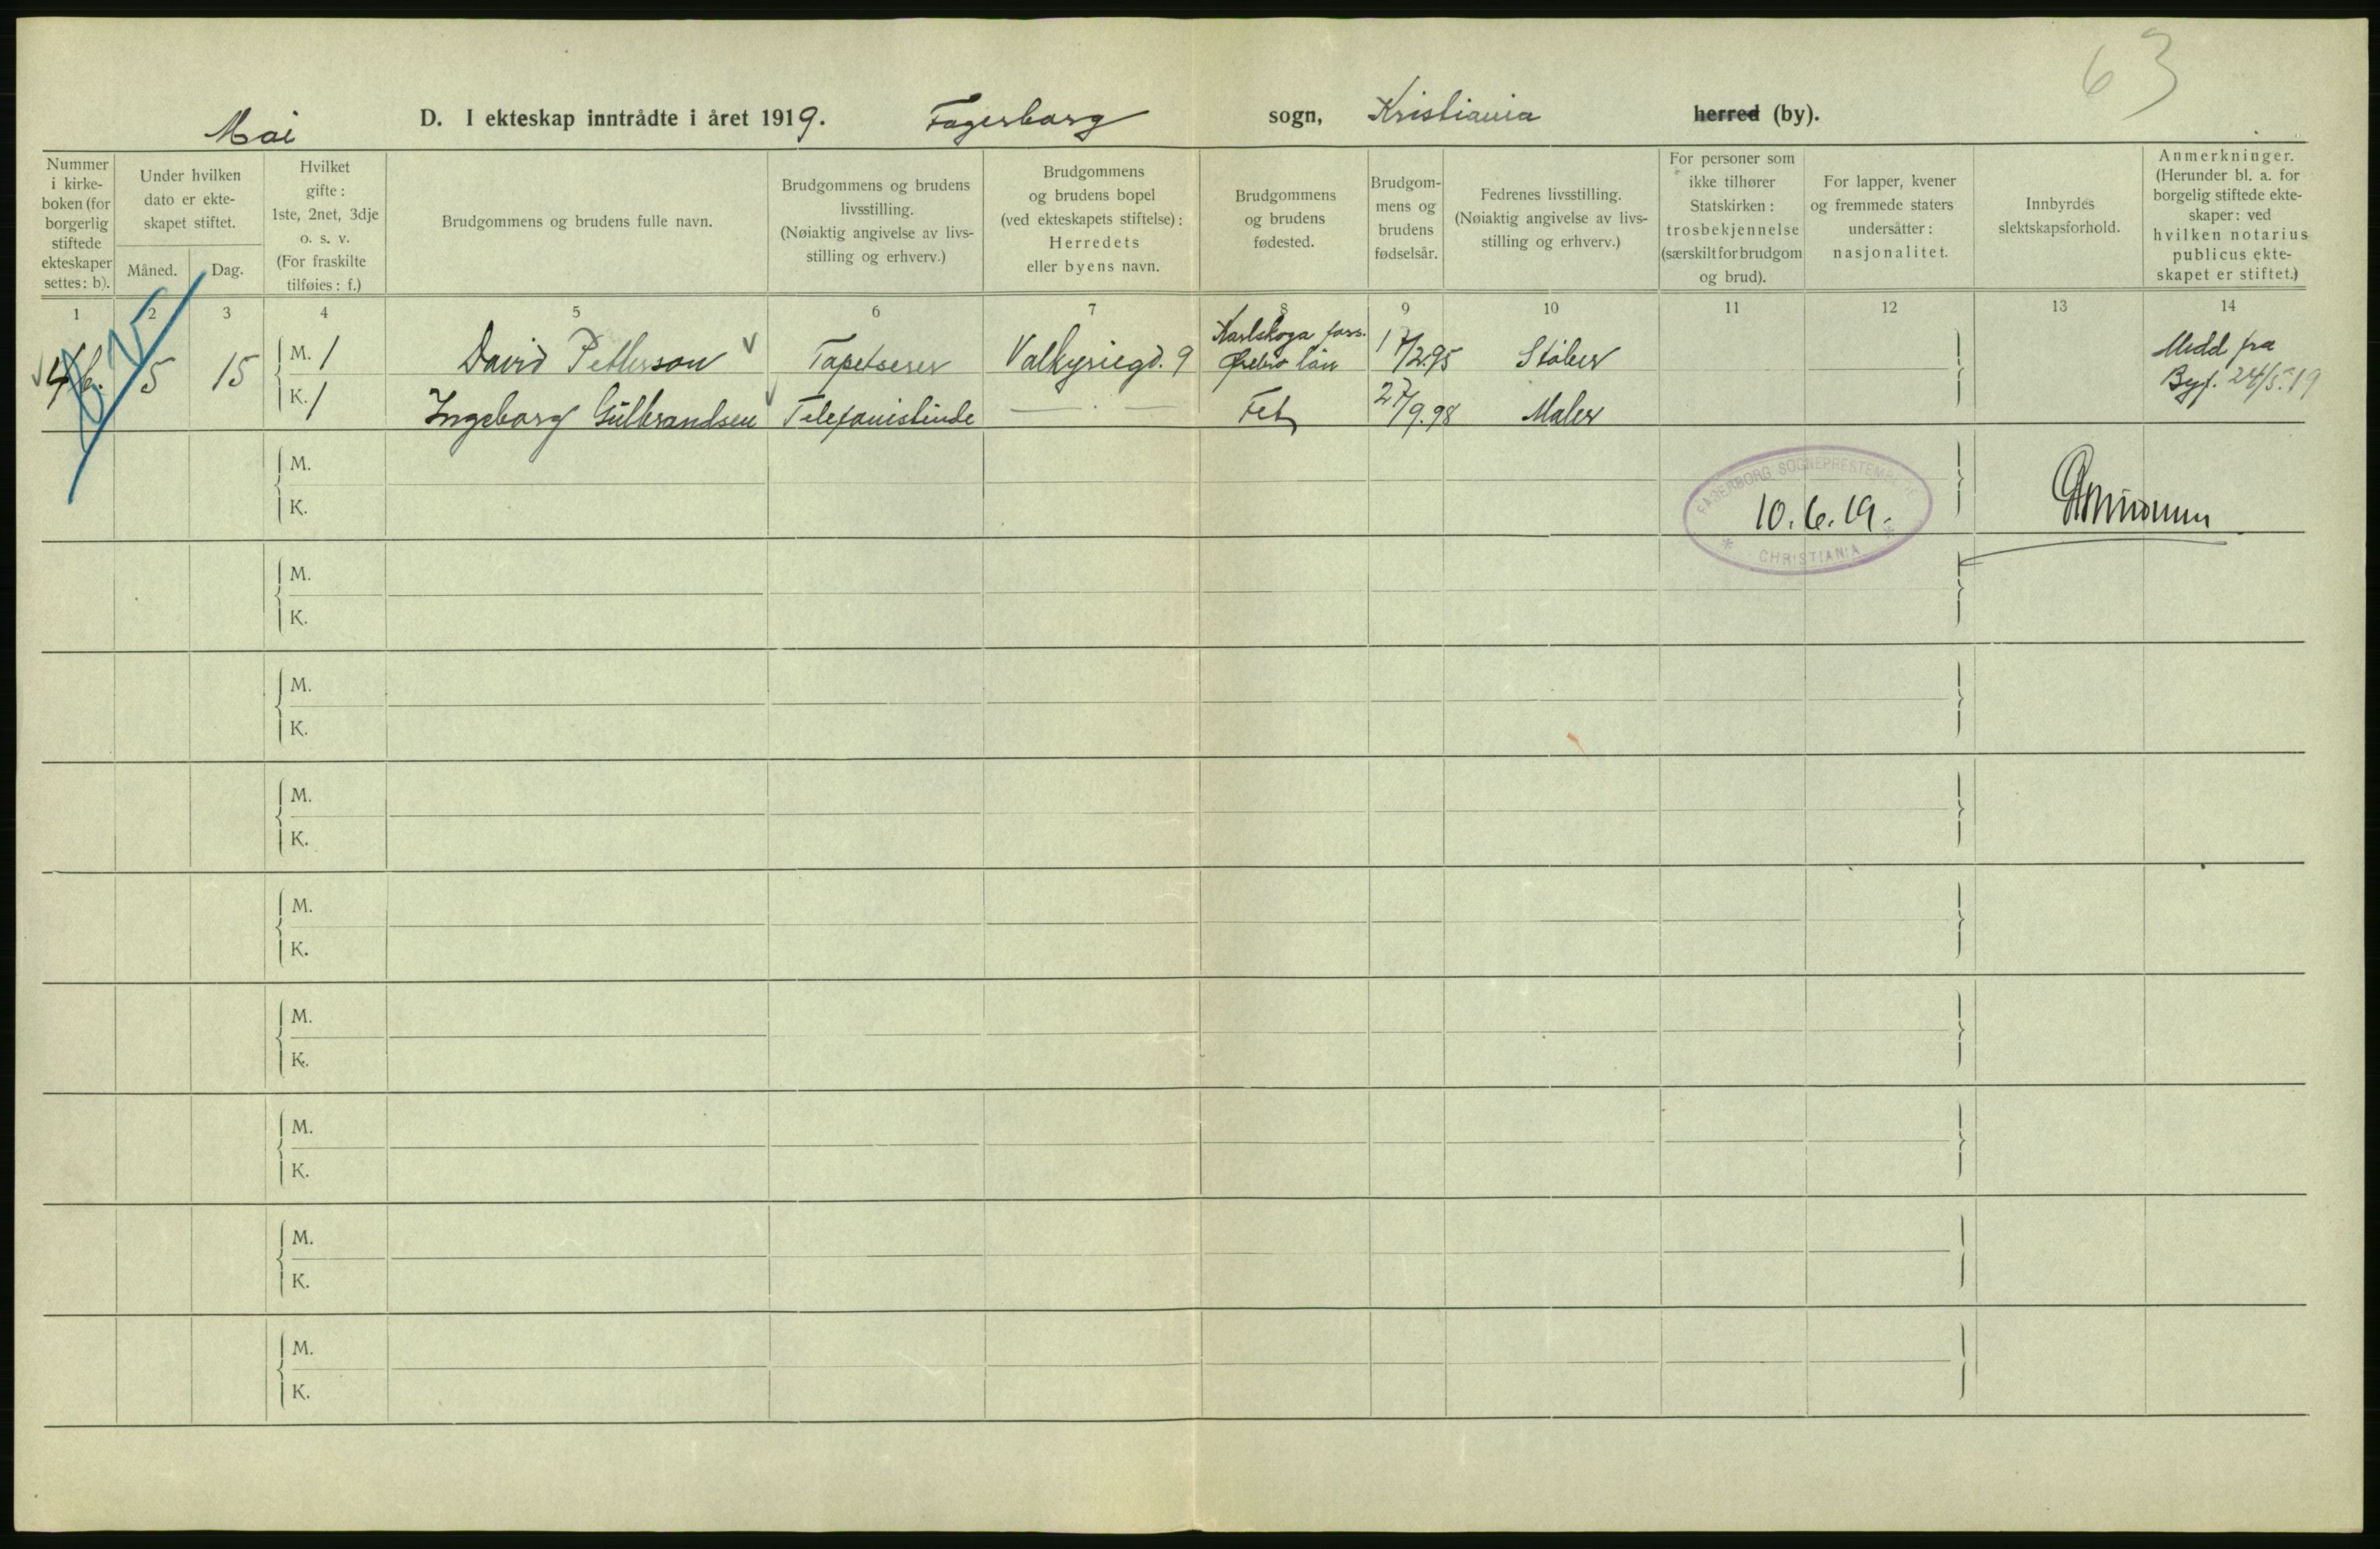 63
Mai D. I ekteskap inntrådte i året 1919. Fagerborg sogn, Kristiania herred (by).
Nummer
i kirke-
boken (for
borgerlig
stiftede
ekteskaper
settes: b).
Under hvilken
dato er ekte-
skapet stiftet.
Måned.
Dag.
Hvilket
gifte:
1ste, 2net, 3dje
o. s. v.
(For fraskilte
tilføies: f.)
Brudgommens og brudens fulle navn.
Brudgommens og brudens
livsstilling.
(Nøiaktig angivelse av livs-
stilling og erhverv.)
Brudgommens
og brudens bopel
(ved ekteskapets stiftelse):
Herredets
eller byens navn.
Brudgommens
og brudens
fødested.
Brudgom-
mens og
brudens
fødselsår.
Fedrenes livsstilling.
(Nøiaktig angivelse av livs-
stilling og erhverv.)
For personer som
ikke tilhører
Statskirken:
trosbekjennelse
(særskilt for brudgom
og brud).
For lapper, kvener
og fremmede staters
undersåtter:
nasjonalitet.
Innbyrdes
slektskapsforhold.
Anmerkninger.
(Herunder bl. a. for
borgelig stiftede ekte-
skaper: ved
hvilken notarius
publicus ekte-
skapet er stiftet.)
1 2 3 4 5 6 7 8 9 10 11 12 13 14
5 15
M. 1 David Petterson Tapetserer Valkyriegd. 9 Karlskoga fors. Ørebro län 17/2.95 Støber
K. 1 Ingeborg Gulbrandsen Telefonistinde — . — Fet 27/9.98 Maler
Medd fra
Byf. 24/5.19
M.
K.
FAGERBORG SOGNEPRESTEMBEDE
10.6.19.
CHRISTIANIA
M.
K.
M.
K.
M.
K.
M.
K.
M.
K.
M.
K.
M.
K.
M.
K.